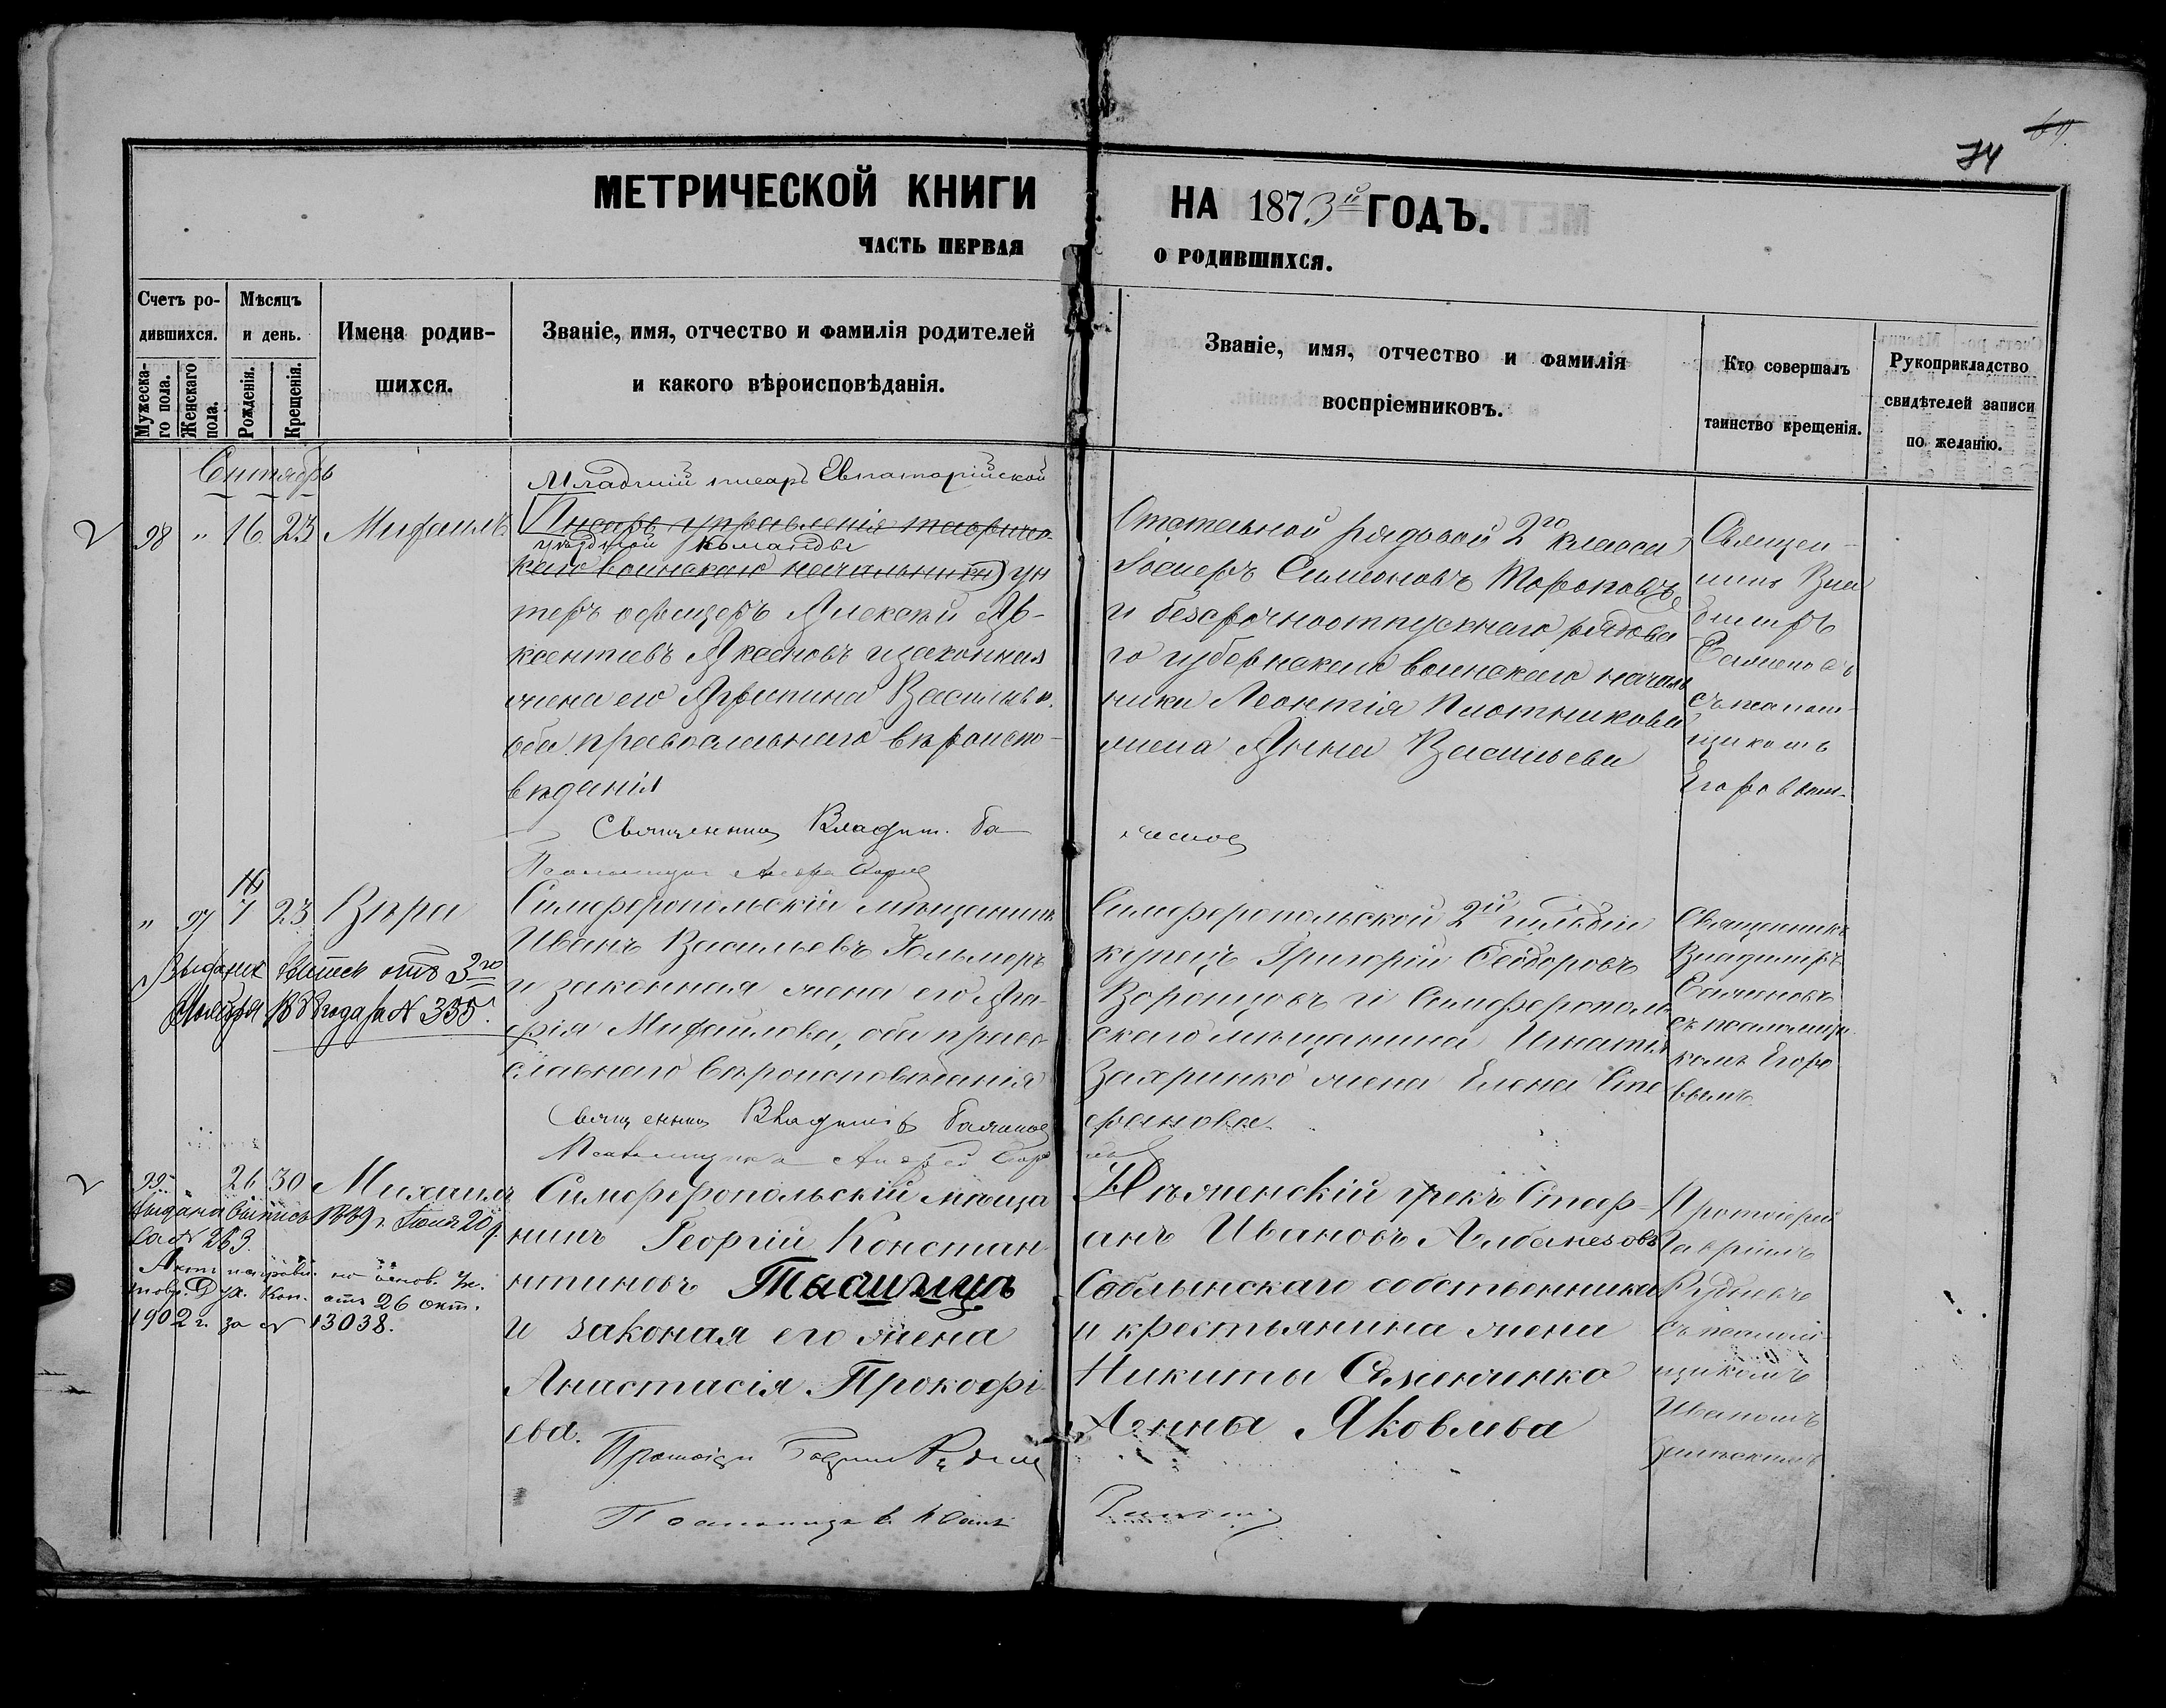 74
69.
МЕТРИЧЕСКОЙ КНИГИ НА 1873й ГОДЪ.
ЧАСТЬ ПЕРВАЯ О РОДИВШИХСЯ.
Счетъ ро-
дившихся.
Мужеска-
го пола.
Женскаго
пола.
Мѣсяцъ
и день.
Рожденія.
Крещенія.
Имена родив-
шихся.
Званіе, имя, отчество и фамилія родителей
и какого вѣроисповѣданія.
Званіе, имя, отчество и фамилія
воспріемниковъ.
Кто совершалъ
таинство крещенія.
Рукоприкладство
свидѣтелей записи
по желанію.
Сентябрь
98 " 16 23 Михаилъ
Младшій писарь Евпаторійской
Писарь управленія тавричес-
уѣздной команды
каго воинскаго начальника ун
теръ офицеръ Алексѣй Ав-
ксентіевъ Аксеновъ и законная
жена его Агрипина Васильева.
оба православнаго вѣроиспо-
вѣданія
Священникъ Владим. Ба
Псаломщикъ
Отставной рядовой 2го класса
Симеоновъ Тороповъ
и безсрочноотпускнаго рядова
го губернскаго воинскаго началь
ника Леонтія Плотникова
жена Анна Васильева
Священ-
никъ Вла
димиръ
съ псалом-
щикомъ
Егоровым.
" 97 16 7 23 Вѣра
Выдана выпись отъ 3го
1888 года за N 335.
Симферопольскій мѣщанинъ
Иванъ Васильевъ
и законная жена его Ма-
рія Михайлова, оба право-
славнаго вѣроисповѣданія
Священникъ Владиміръ
Псаломщикъ Андрей
Симферопольской 2й гильдіи
купецъ Григорій Ѳеодоровъ
Воронцовъ и Симферополь
скаго мѣщанина Игнатія
Захринко жена Елена Сте
фанова.
Священникъ
Владимиръ
съ псаломщи-
комъ Егоро
вымъ
99 26 30 Михаилъ
Выдана выпись 1889 г. Іюля 20 д.
за N 263.
Актъ исправл. на основ. Ук.
Тавр. Дух. Кон. отъ 26 окт.
1902 г. за N 13038.
Симферопольскій мѣща
нинъ Георгій Констан
нтиновъ Ташчщъ
и законая его жена
Анастасія Прокофі-
ева.
Протоіер
Псаломщикъ
Нѣженскій грекъ Стеф-
анъ Ивановъ Албанезовъ
Саблынскаго собственника
и крестьянина жена
Никиты Семенченко
Аенна Яковлева
Протоіерей
Гавріилъ
Рудневъ
съ псалом-
щикомъ
Иваномъ